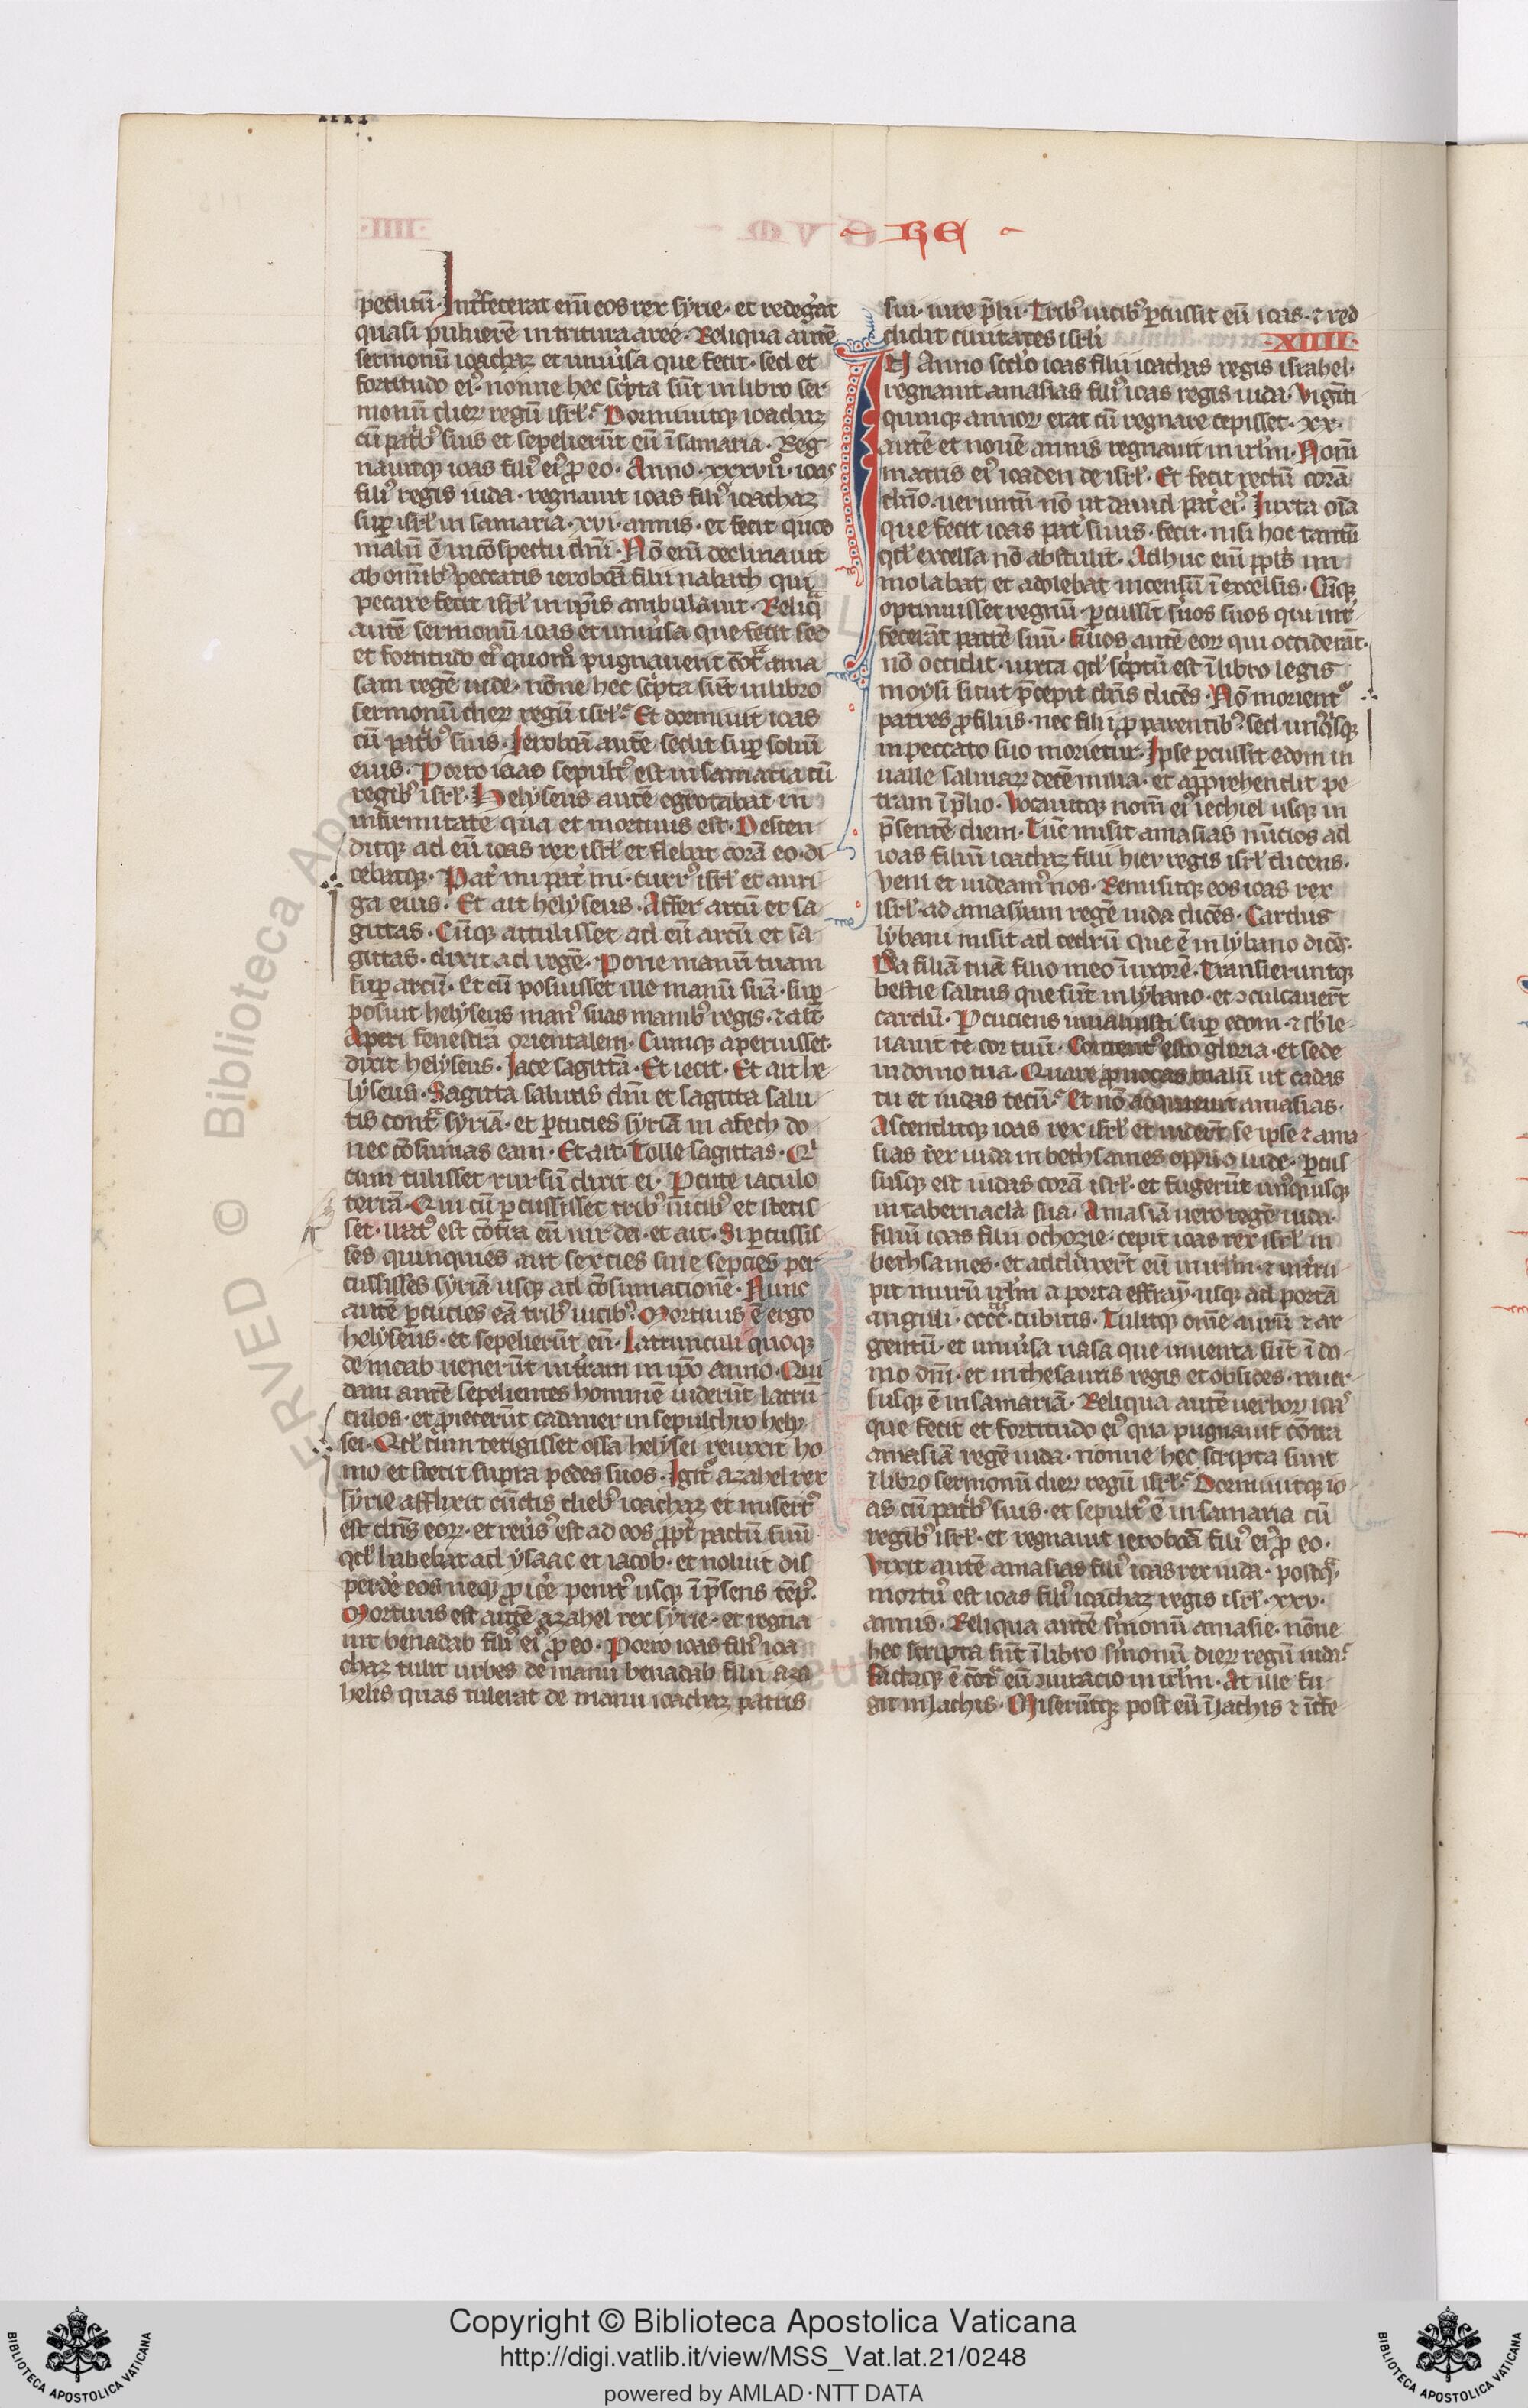 RE
peditũ · Int̾fecerat em̃ eos rex syrie · et redeg̾at
quasi puluerẽ in tritura aree · Reliqua autẽ
sermonũ ioachaz et uniũsa que fecit · sed et
fortitudo ei᷒ · nonne hec sc̾pta sũt in libro ser
monũ dierꝝ regũ isrl̃ · Dormiuitqꝫ ioachaz
cũ patrib᷒ suis et sepelierũt eũ ĩ samaria · Reg
nauitqꝫ ioas fili᷒ ei᷒ ꝓ eo · Anno · xxxvii · ioas
fili᷒ regis iuda · regnauit ioas fili᷒ ioachaz
suꝑ isrl̃ in samaria · xvi · annis · et fecit quod
malũ ẽ in cõspectu dñi · Nõ em̃ declinauit
ab om̃ib᷒ peccatis ieroboã filii nabath qui
peccare fecit isrl̃ in ip̃is ambulauit · Reliq̃
autẽ sermonũ ioas et uniũsa que fecit sed
et fortitudo ei᷒ quom̊ pugnauerit cõt̃ ama
sam regẽ iude · nõne hec sc̾pta sũt in libro
sermonũ dierꝝ regũ isrl̃ · Et dormiuit ioas
cũ patrib᷒ suis · Ieroboã autẽ sedit suꝑ soliũ
eius · Porro ioas sepult᷒ est in samaria cũ
regib᷒ isrl̃ · Helyseus autẽ egrotabat in
infirmitate qua et mortuus est · Descen
ditqꝫ ad eũ ioas rex isrl̃ et flebat corã eo · di
cebatqꝫ · Pat̾ mi pat̾ mi · curr᷒ isrl̃ et auri
ga eius · Et ait helyseus · Affer arcũ et sa
gittas · Cũqꝫ attulisset ad eũ arcũ et sa
gittas · dixit ad regẽ · Pone manũ tuam
suꝑ arcũ · Et cũ posuisset ille manũ suã · suꝑ
posuit helyseus man᷒ suas manib᷒ regis · ⁊ ait
Aperi fenestrã orientalem · Cumqꝫ aperuisset
dixit helyseus · Iace sagittã · Et iecit · Et ait he
lyseus · Sagitta salutis dñi et sagitta salu
tis cont̃ syriã · et ꝑcuties syriã in afech do
nec cõsumas eam · Et ait · Tolle sagittas · Qͥ
cum tulisset rursũ dixit ei · Ꝑcute iaculo
terrã · Qui cũ ꝑcussisset trib᷒ uicib᷒ et stetis
set · irat᷒ est cõtra eũ uir dei · et ait · Si ꝑcussis
ses quinquies aut sexcies siue sepcies per
cussisses syriã usqꝫ ad cõsumacionẽ · Nunc
autẽ ꝑcuties eã trib᷒ uicib᷒ · Mortuus ẽ ergo
helyseus · et sepelierũt eũ · Latrunculi quoqꝫ
de moab uenerũt in t̾ram in ip̃o anno · Qui
dam autẽ sepelientes hominẽ uiderũt latrũ
culos · et ꝓiecerũt cadauer in sepulchro hely
sei · Qd̃ cum tetigisset ossa helysei reuixit ho
mo et stetit supra pedes suos · Igit᷑ azahel rex
syrie afflixit cũctis dieb᷒ ioachaz et misert᷒
est dñs eorꝝ · et reũs᷒ est ad eos ꝓpt̾ pactũ suũ
qd̃ habebat ad ysaac et iacob · et noluit dis
perdẽ eos neqꝫ ꝓicẽ penit᷒ usqꝫ ĩ p̃sens tẽp᷒ ·
Mortuus est autẽ azahel rex syrie · et regna
uit benadab fili᷒ ei᷒ ꝓ eo · Porro ioas fili᷒ ioa
chaz tulit urbes de manu benadab filii aza
helis quas tulerat de manu ioachaz patris
sui · iure p̃lii · Trib᷒ uicib᷒ ꝑcussit eũ ioas · ⁊ red
didit ciuitates isrl̃i
XIIII
In Anno scd̃o ioas filii ioachas regis israhel ·
regnauit amasias fili᷒ ioas regis iuda · Viginti
quinqꝫ annorꝝ erat cũ regnare cepisset · xx ·
autẽ et nouẽ annis regnauit in irl̃m · Nom̃
matris ei᷒ ioaden de isrl̃ · Et fecit rectũ corã
dño · ueruntũ nõ ut dauid pat̾ ei᷒ · Iuxta oĩa
que fecit ioas pat̾ suus · fecit · nisi hoc tantũ
qd̃ excelsa nõ abstulit · Adhuc em̃ ppl̃s im
molabat et adolebat incensũ ĩ excelsis · Cũqꝫ
optinuisset regnũ · ꝑcussit s̾uos suos qui int̾
fecerãt patrẽ suũ · Filios autẽ eorꝝ qui occiderãt
nõ occidit · iuxta qd̃ sc̾ptũ est ĩ libro legis
moysi sicut p̃cepit dñs dicẽs · Nõ morient᷑
patres ꝓ filiis · nec filii ꝓ parentib᷒ · sed unqͥsqꝫ
in peccato suo morietur · Ipse ꝑcussit edom in
ualle salinarꝝ decẽ milia · et apprehendit pe
tram ĩ p̃lio · Vocauitqꝫ nom̃ ei᷒ iechiel usqꝫ in
p̃sentẽ diem · Tũc misit amasias nũcios ad
ioas filiũ ioachaz filii hiev regis isrl̃ dicens ·
Veni et uideam᷒ nos · Remisitqꝫ eos ioas rex
isrl̃ · ad amasiam regẽ iuda dicẽs · Cardus
lybani misit ad cedrũ que ẽ in lybano dicẽs ·
Da filiã tuã filio meo ĩ uxorẽ · Transieruntqꝫ
bestie saltus que sũt in lybano · et ↄculcauer̃t
cardũ · Ꝑcuciens inualuisti suꝑ edom · ⁊ s̃ble
uauit te cor tuũ · Content᷒ esto gloria · et sede
in domo tua · Quare ꝓuocas malũ ut cadas
tu et iudas tecũ · Et nõ adquieuit amasias ·
Ascenditqꝫ ioas rex isrl̃ et uider̃t se ipse ⁊ ama
sias rex iuda in bethsames oppido iude · Ꝑcus
susqꝫ est iudas corã isrl̃ · et fugerũt un᷒qͥsqꝫ
in tabernacl̃a sua · Amasiã uero regẽ iuda ·
filiũ ioas filii ochozie · cepit ioas rex isrl̃ in
bethsames · et adduxer̃t eũ in irl̃m · ⁊ int̾ru
pit murũ irl̃m a porta effraym · usqꝫ ad portã
anguli · cccc · cubitis · Tulitqꝫ om̃e aurũ ⁊ ar
gentũ · et uniũsa uasa que inuenta sũt ĩ do
mo dñi · et in thesauris regis et obsides · reuer
susqꝫ ẽ in samariã · Reliqua autẽ uerborꝝ ioa᷒
que fecit et fortitudo ei᷒ qua pugnauit cõtra
amasiã regẽ iuda · nonne hec scripta sunt
ĩ libro sermonũ dierꝝ regũ isrl̃ · Dormiuitqꝫ io
as cũ patrib᷒ suis · et sepult᷒ ẽ in samaria cũ
regib᷒ isrl̃ · et regnauit ieroboã fili᷒ ei᷒ ꝓ eo ·
Vixit autẽ amasias fili᷒ ioas rex iuda · postq̃
mortu᷒ est ioas fili᷒ ioachaz regis isrl̃ · xxv ·
annis · Reliqua autẽ s̾monũ amasie · nõne
hec scripta sũt ĩ libro s̾monũ dierꝝ regũ iuda ·
Factaqꝫ ẽ cõt̃ eũ ↄiuracio in irl̃m · At ille fu
git in lachis · Miserũtqꝫ post eũ ĩ lachis ⁊ ĩt̾fe
Copyright © Biblioteca Apostolica Vaticana
http://digi.vatlib.it/view/MSS_Vat.lat.21/0248
powered by AMLAD·NTT DATA
BIBLIOTECA APOSTOLICA VATICANA
BIBLIOTECA APOSTOLICA VATICANA